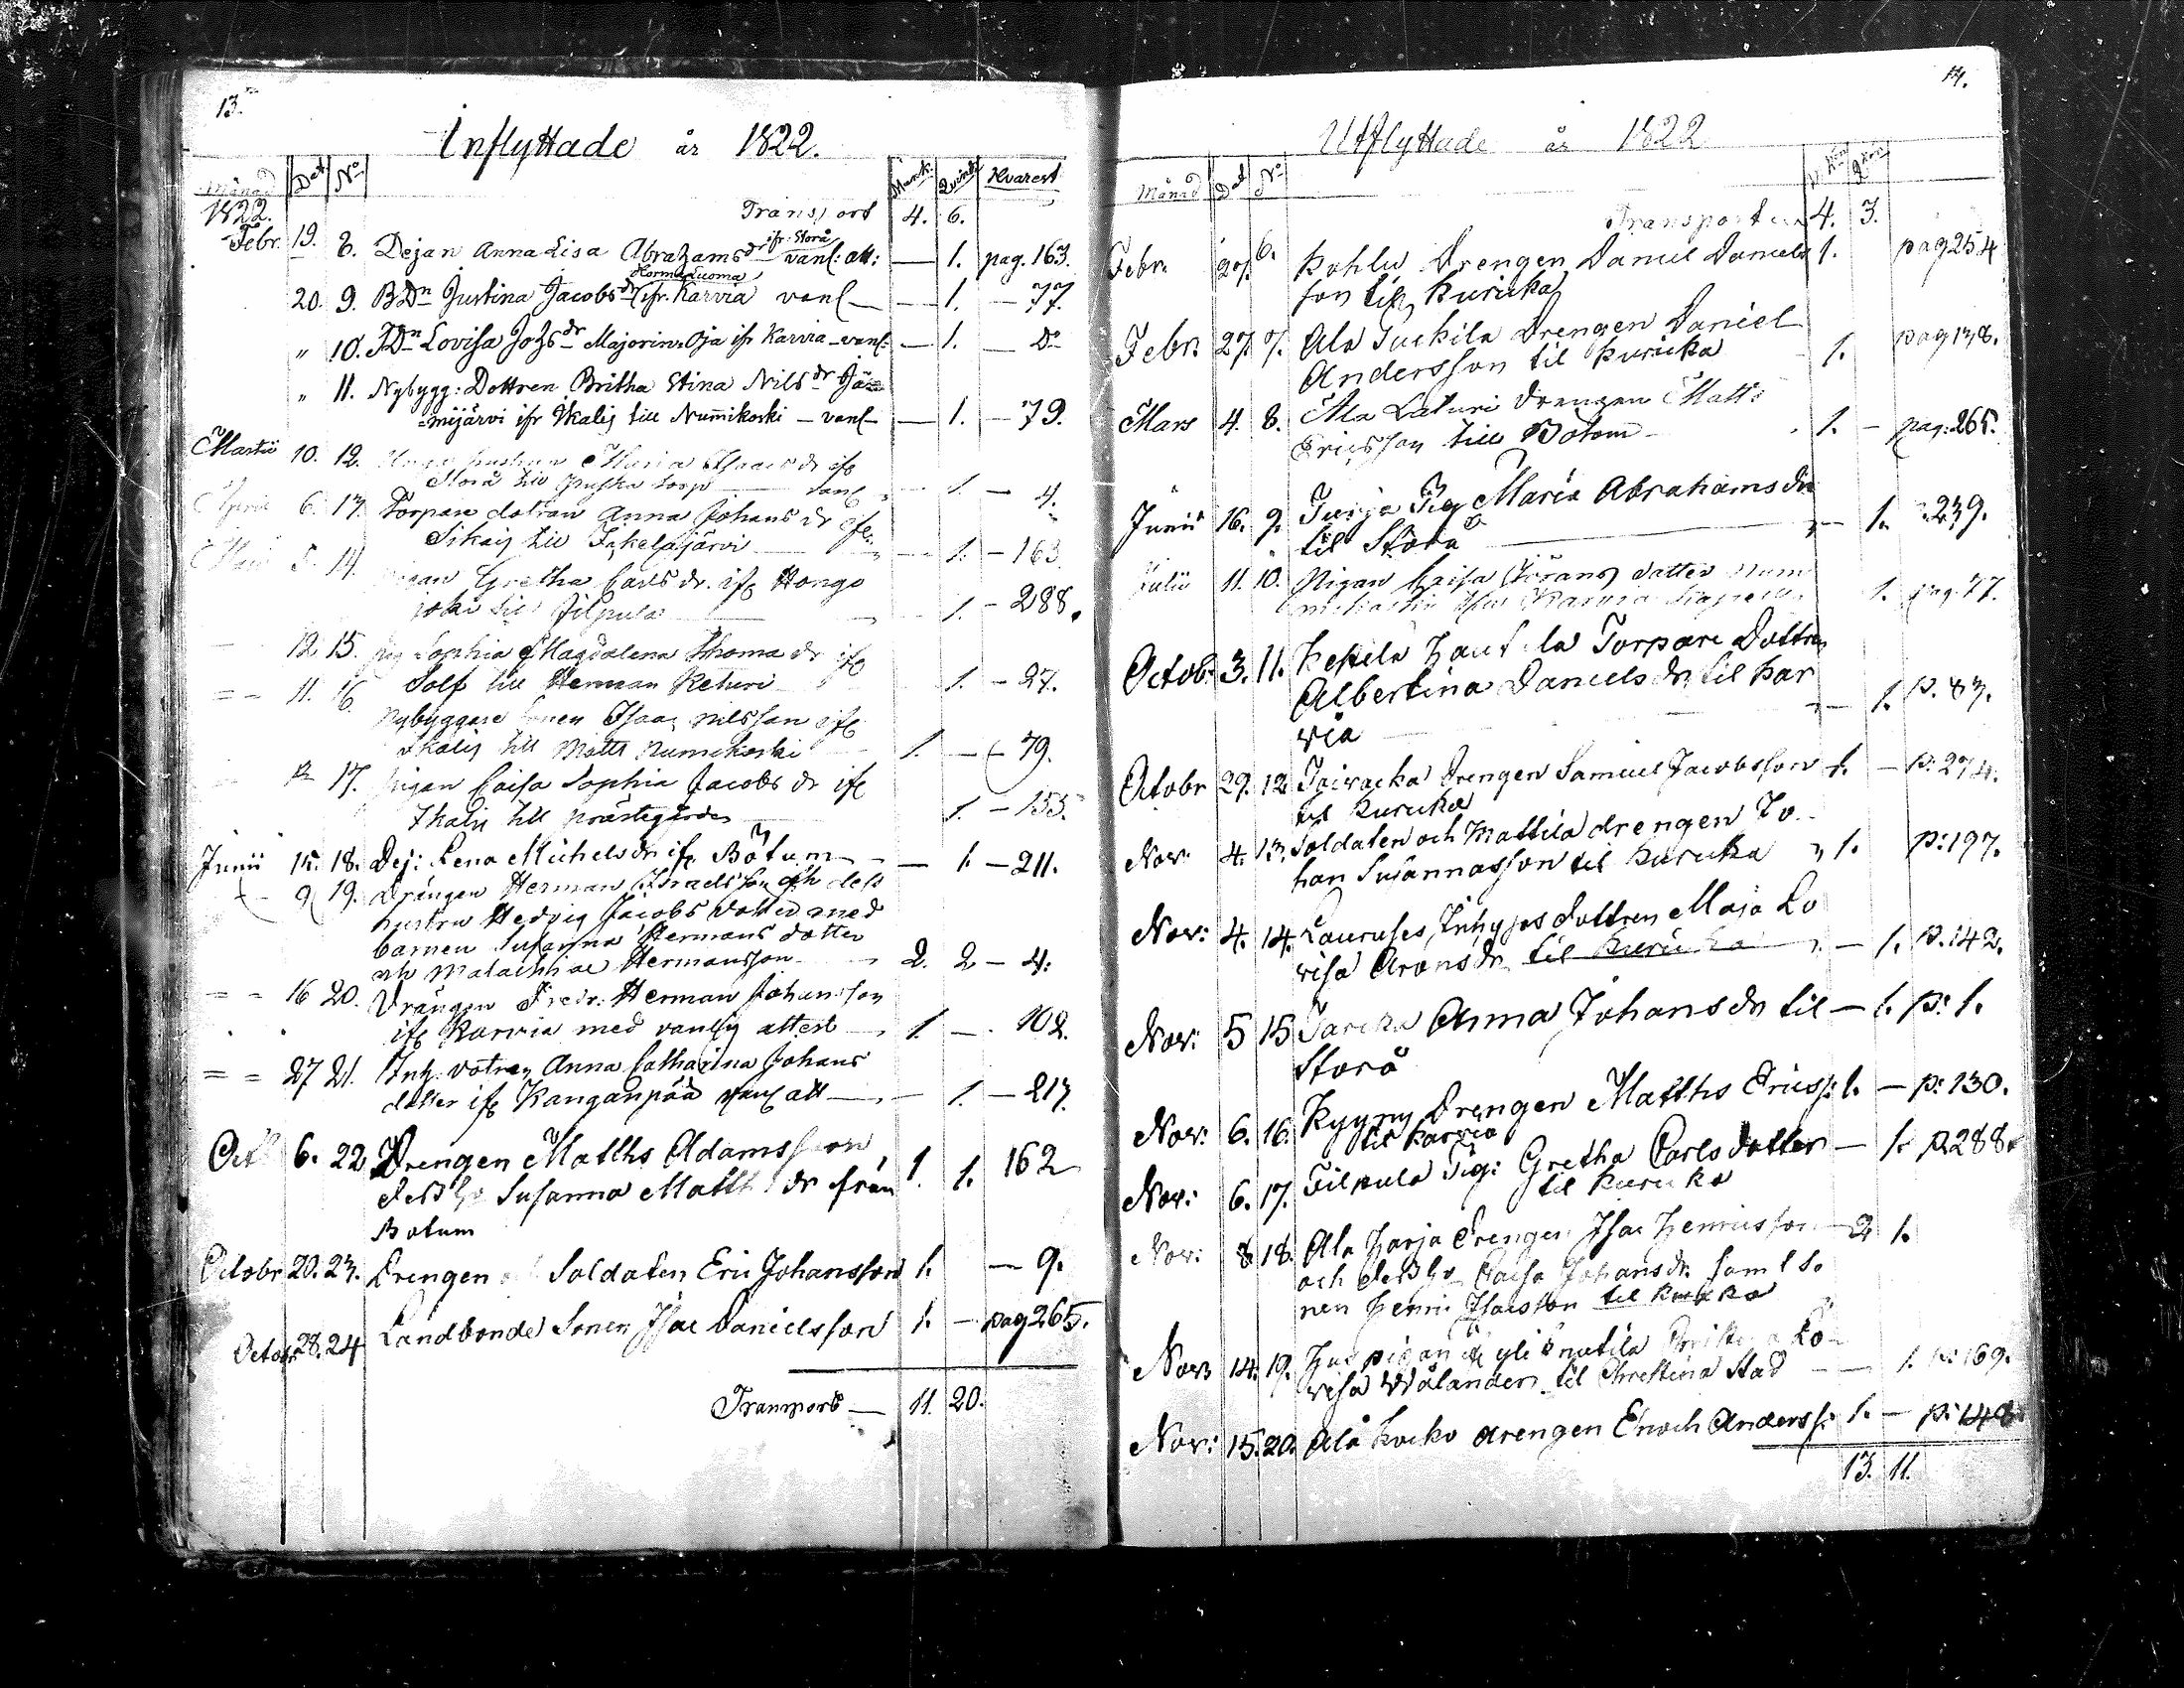 13.
Inflyttade år 1822.
Månad Dat No Mank: Qvink Kvarest
1822. Transport 4. 6.
Febr. 19. 8. Dejan Anna Lisa Abrahams dr ifr. Storå vanl: att: — 1. pag. 163.
Hormaluoma
20. 9. BDn Justina Jacobs dr ifr. Karvia vanl — — 1. — 77.
" 10. TDn Lovisa Johs dr Majorin Oja ifr Karvia — vanl: — 1. — Do
" 11. Nybygg: Dottren Britha Stina Nils dr Jä=
=mijärvi ifr Ikalis till Nummikoski — vanl — — 1. — 79.
Martii 10. 12. hustrun Maria Isaacs dr ifr
Storå till Puska torp — vanl — 1. — 4.
April 6. 13. Torpare dotran Anna Johans dr ifr
Sikais till Inkelajärvi — — 1. — 163
Maii 5. 14. Pigan Gretha Carls dr. ifr Hongo
joki till Filpula — 1. — 288.
12 15. pig Sophia Magdalena Thoma dr ifr
Solf till Herman Keturi 1. — 27.
= = 11. 16. Nybyggare sonen Isaac Nilsson ifr
Ikalis till Matts Numikoski 1. — 79.
17. pigan Caisa Sophia Jacobs dr ifr
Ikalis till prästegården — 1. — 153.
Junii 15. 18. Dej: Lena Michels dr ifr Bötum — — 1. — 211.
9 19. Drängen Herman Israelsson och dess
hustru Hedvig Jacobs dotter med
barnen Susanna Hermans dotter
och Malachiae Hermansson — 2. 2 — 4:
= = 16 20. Drängen Fredr. Herman Johansson
ifr Karvia med vanlig attest — 1. — 102.
= = 27 21. Inh. dotren Anna Catharina Johans
dotter ifr Kanganpää vanl att — — 1. — 213
Oct 6. 22 Drengen Matths Adamsson,
dess h. Susanna Matths dr från 1. 1. 162
Botum
Octobr 20. 23. Drengen Soldaten Eric Johansson 1. — 9.
Octobr 28. 24 Landbonde Sonen Isac Danielsson 1. — pag 265.
Transport — 11. 20.
14.
Utflyttade år 1822
Månad Dat No
Transport 4. 3.
Febr. 27. 6. Kohlu Drengen Daniel Daniels 1. pag 254
son till Kuricka
Febr. 27. 7. Ala Luckila Drengen Daniel
Andersson til Kuricka 1. pag 138.
Mars 4. 8. Ala Laturi drengen Matts
Ericsson till Botom — 1. — pag: 265.
Junii 16. 9. Turja Pig Maria Abrahams dr
til Storå — 1. 239.
Julii 11. 10. Pigan Caisa Görans dotter Num
mikoski Karvia 1. pag. 77.
Octob. 3. 11. Torpare Dottren
Albertina Daniels dr til Kar
via — 1. p. 83.
Octobr 29. 12 Drengen Samuel Jacobsson 1. — p. 274.
til Kuricka
Nov: 4. 13. Soldaten och Mattila drengen Jo
han Susannasson til Kuricka " 1. p: 197.
Nov: 4. 14. Inhyses dottren Maja Lo
visa Arons dr til Kuricka — 1. p. 142.
Nov: 5 15 Anna Johans dr til — 1. p: 1.
Storå
Nov: 6. 16. Kyyny Drengen Matths Ericss: 1. — p: 130.
til Karvia
Nov: 6. 17. Filpula Pig: Gretha Carls dotter — 1. p. 288.
til Kuricka
Nov: 8 18. Ala Harja Drengen Isac Henricsson — 2 1.
och dess h. Caisa Johans dr samt So
nen Henric Isacsson til Kuricka
Nov. 14. 19. Huspigan Lo-
visa Wålander til Christina Stad — 1. p: 169.
Nov: 15. 20. Ala Kocko drengen Enoch Anderss: 1. — p: 148
13. 11.